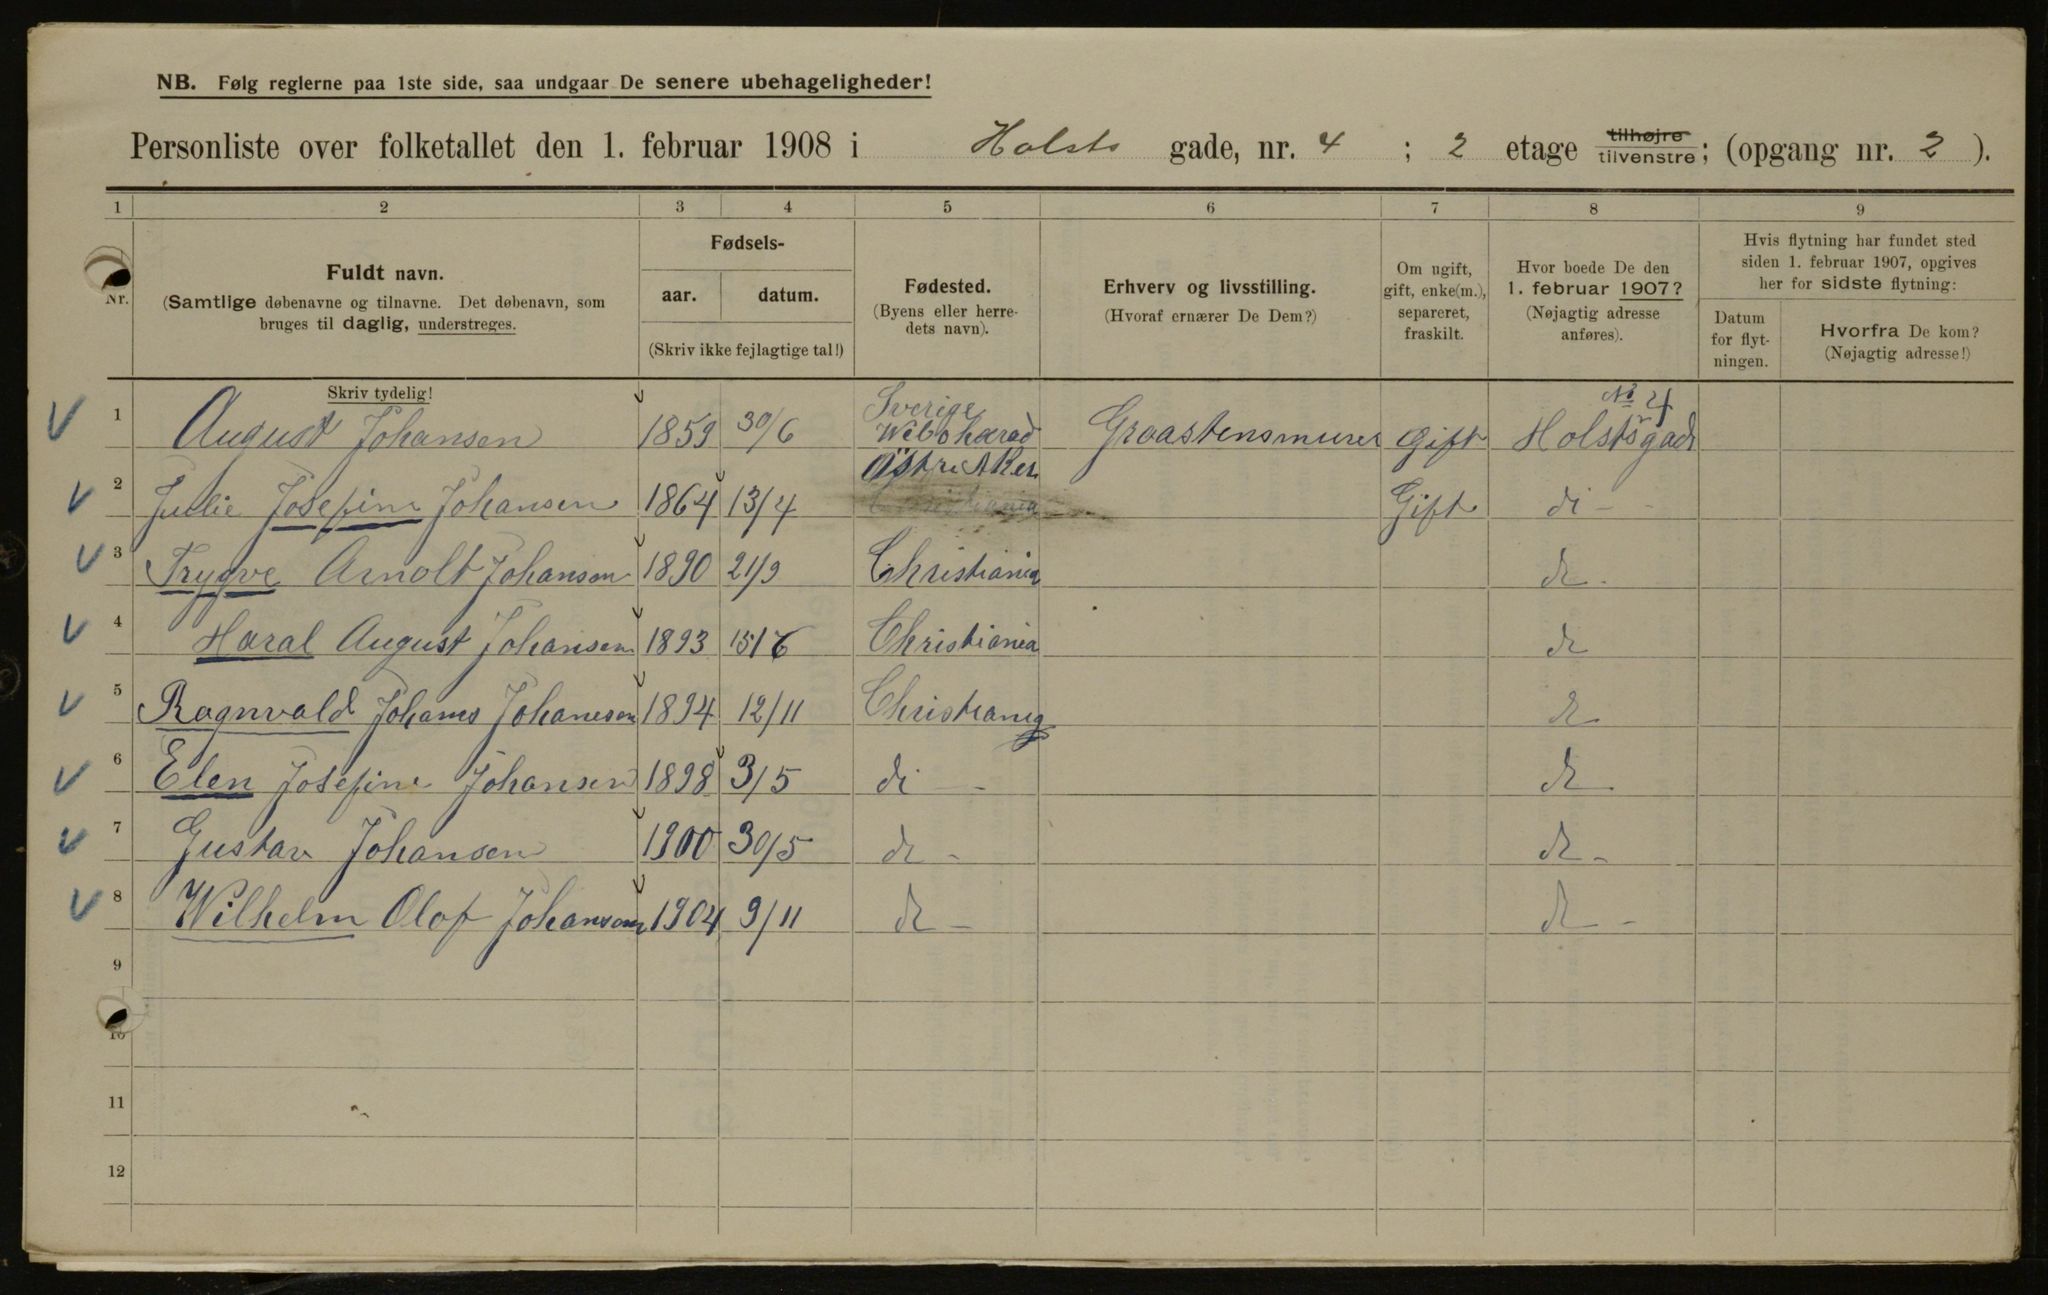 NB. Følg reglerne paa 1ste side, saa undgaar De senere ubehageligheder!
Personliste over folketallet den 1. februar 1908 i Holsts gade, nr. 4 ; 2 etage tilhøjre tilvenstre; (opgang nr. 2 ).
1 2 3 4 5 6 7 8 9
Nr.
Fuldt navn.
(Samtlige døbenavne og tilnavne. Det døbenavn, som
bruges til daglig, understreges.
Skriv tydelig!
Fødsels-
aar. datum.
(Skriv ikke fejlagtige tal!)
Fødested.
(Byens eller herre-
dets navn).
Erhverv og livsstilling.
(Hvoraf ernærer De Dem?)
Om ugift,
gift, enke(m.),
separeret,
fraskilt.
Hvor boede De den
1. februar 1907?
(Nøjagtig adresse
anføres).
Hvis flytning har fundet sted
siden 1. februar 1907, opgives
her for sidste flytning:
Datum
for flyt-
ningen.
Hvorfra De kom?
(Nøjagtig adresse!)
Sverige No 4
1 August Johansen 1859 30/6 Graastensmurer Gift Holstsgade
2 Julie Josefine Johansen 1864 13/4 Østre Aker Gift di -
3 Trygve Arnolt Johansen 1890 21/9 Christiania do -
4 Haral August Johansen 1893 15/6 Christiania do
5 Ragnvald Johans Johansen 1894 12/11 Christiania do
6 Elen Josefine Johansen 1898 3/5 di - do
7 Gustav Johansen 1900 30/5 do - do -
8 Wilhelm Olof Johansen 1904 9/11 do - do -
9
10
11
12